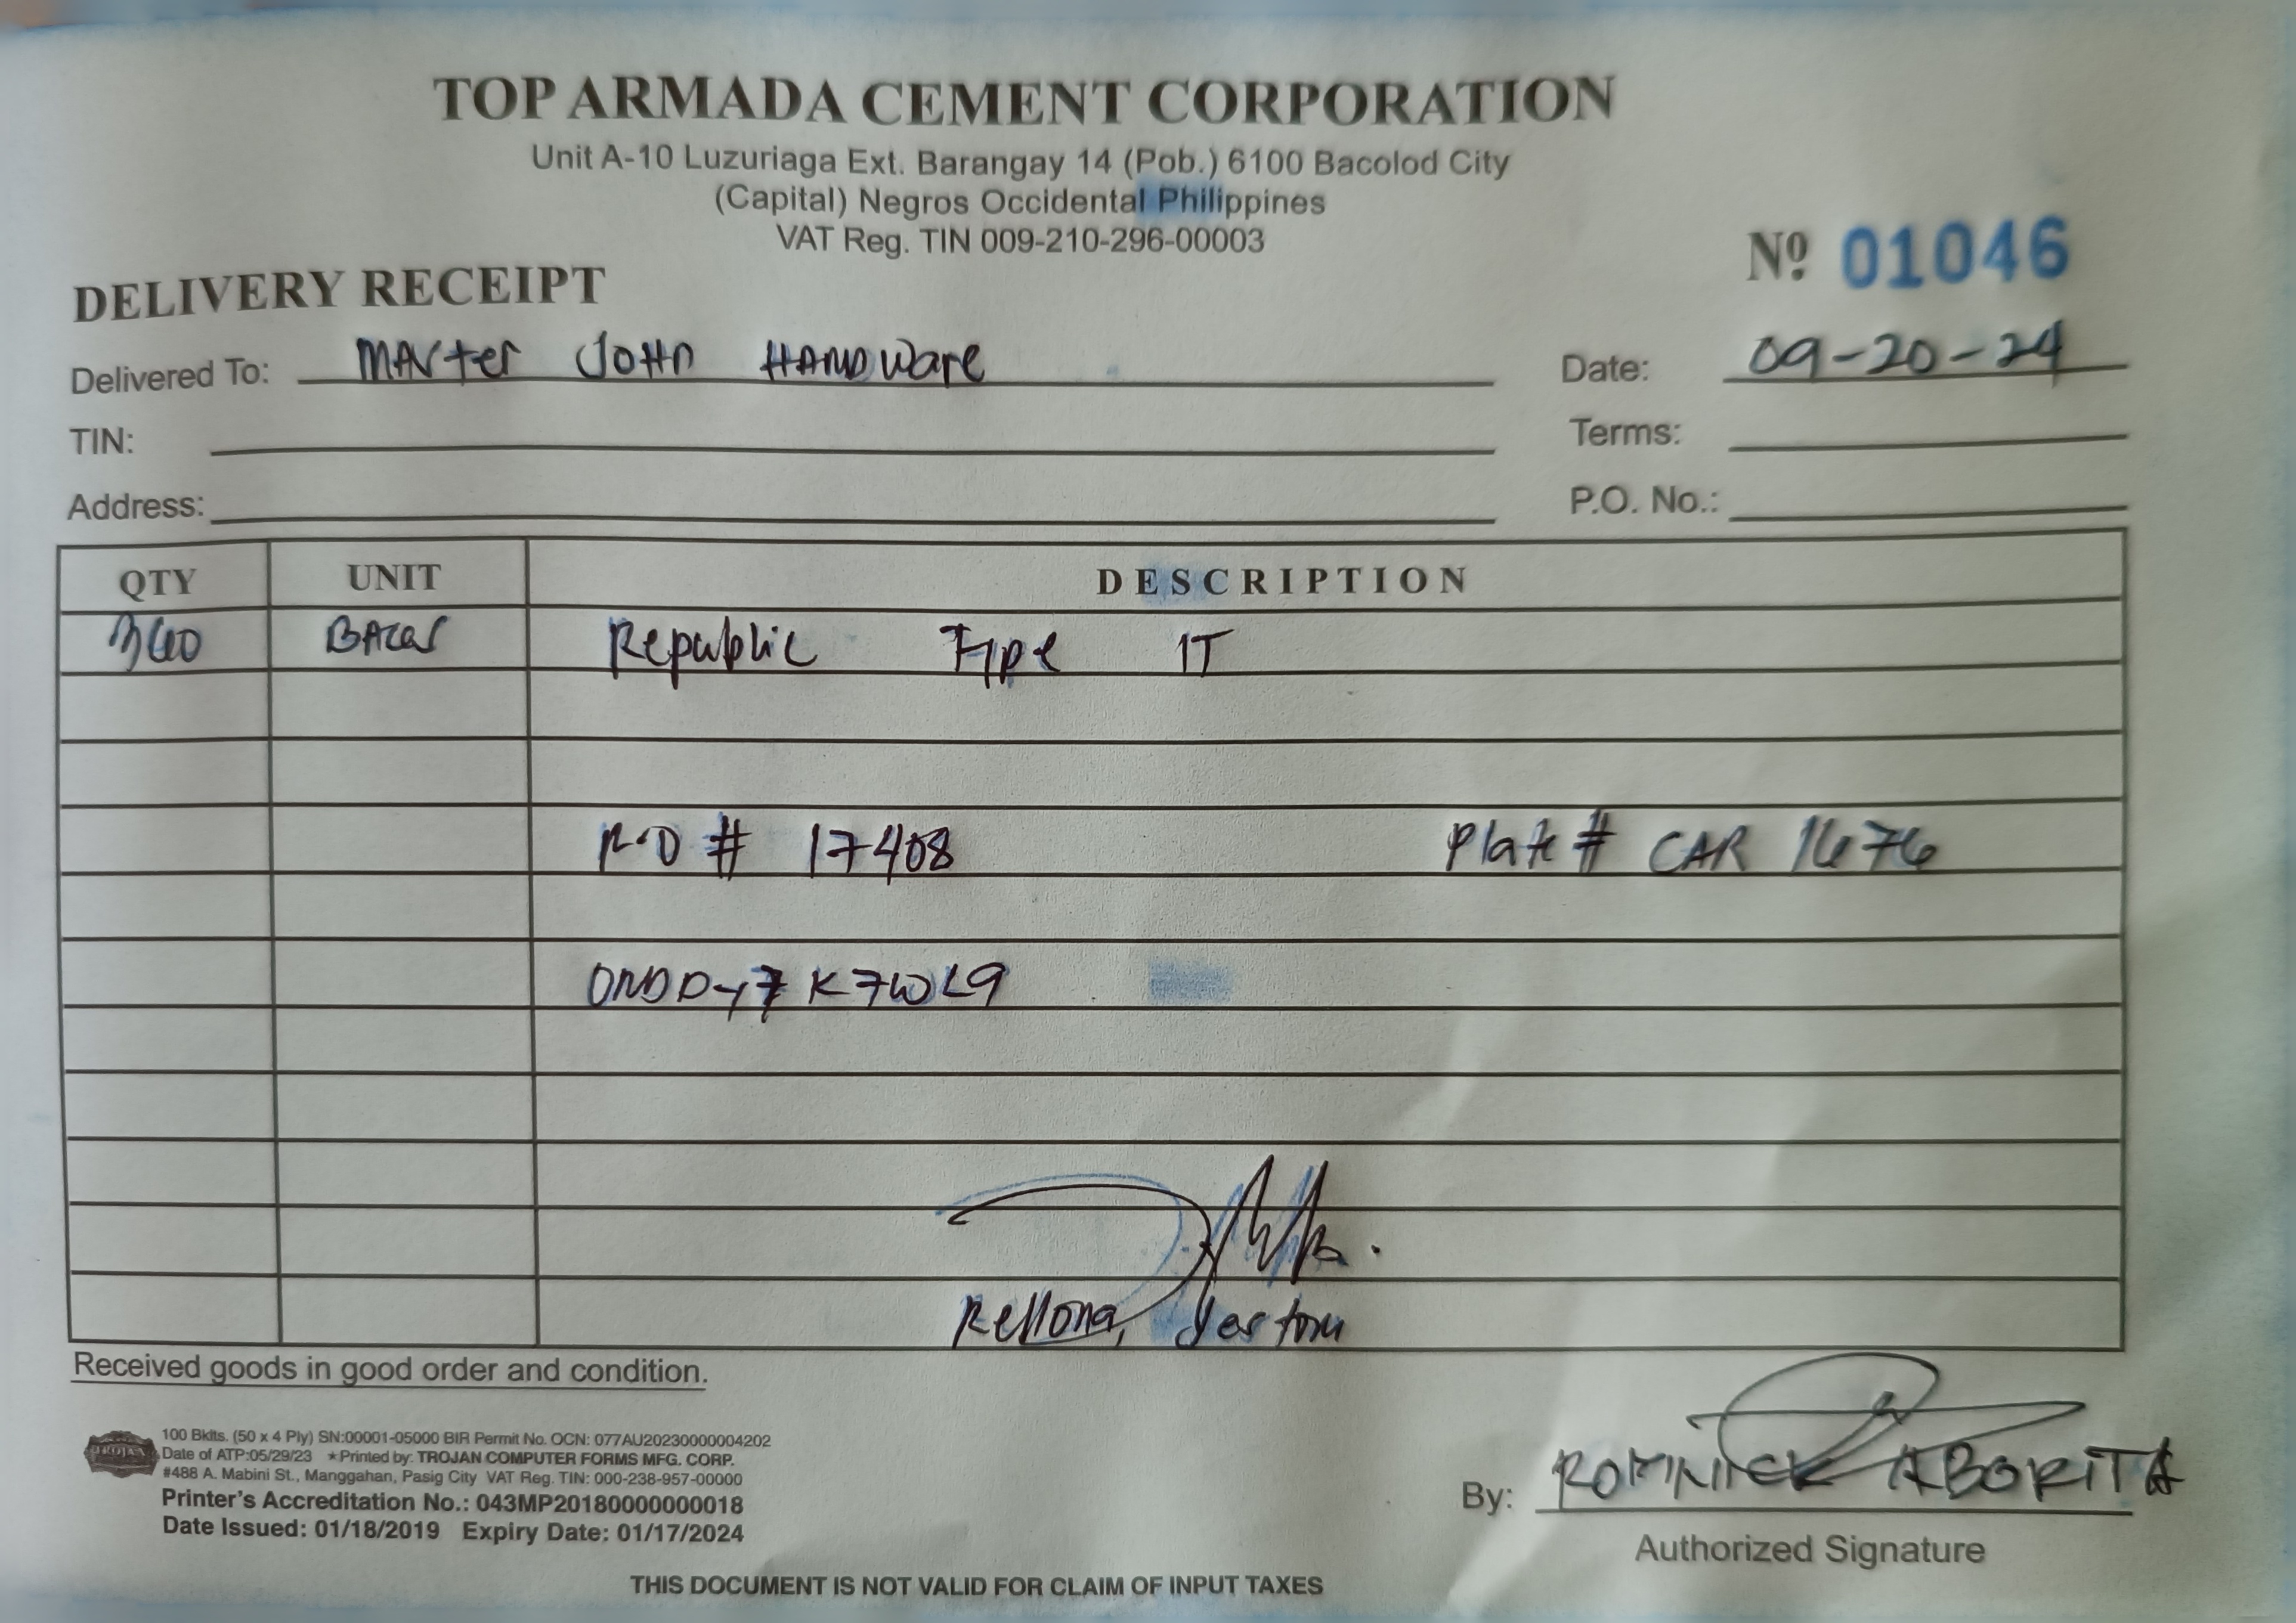 TOP ARMADA CEMENT CORPORATION
Unit A-10 Luzuriaga Ext. Barangay 14 (Pob.) 6100 Bacolod City
(Capital) Negros Occidental Philippines
VAT Reg. TIN 009-210-296-00003
Nº 01046
DELIVERY RECEIPT
Delivered To: Master John Hardware Date: 09-20-24
TIN: Terms:
Address: P.O. No.:
QTY UNIT DESCRIPTION
Republic Type 1T
# 17408 Plate # CAR 1676
Rellona,
Received goods in good order and condition.
TROJAN
100 Bklts. (50 x 4 Ply) SN:00001-05000 BIR Permit No. OCN: 077AU20230000004202
Date of ATP:05/29/23 ★Printed by: TROJAN COMPUTER FORMS MFG. CORP.
#488 A. Mabini St., Manggahan, Pasig City VAT Reg. TIN: 000-238-957-00000
Printer's Accreditation No.: 043MP20180000000018
Date Issued: 01/18/2019 Expiry Date: 01/17/2024
By: ROMNICK ABORITA
Authorized Signature
THIS DOCUMENT IS NOT VALID FOR CLAIM OF INPUT TAXES